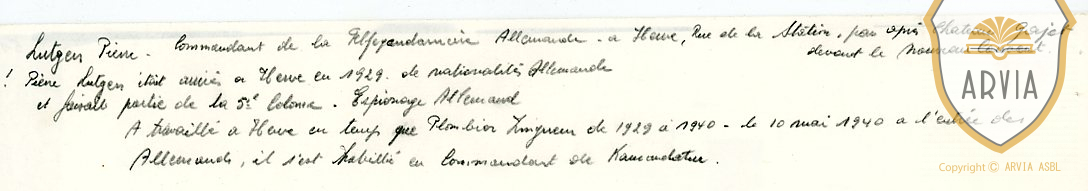 Lutgen Pierre - Commandant de la Feldgendarmerie Allemande - a Herve, Rue de la Station, puis après Chateau
devant le nouveau
! Pierre Lutgen était arrivés a Herve en 1929. de nationalités Allemande
et faisait partie de la 5e Colonne. Espionage Allemand
A travaillé a Herve en temps que Plombier Zingueur de 1929 à 1940 - le 10 mai 1940 a l'entrée des
Allemands, il s'est habillé en Commandant de Kommandatur.
ARVIA
Copyright © ARVIA ASBL